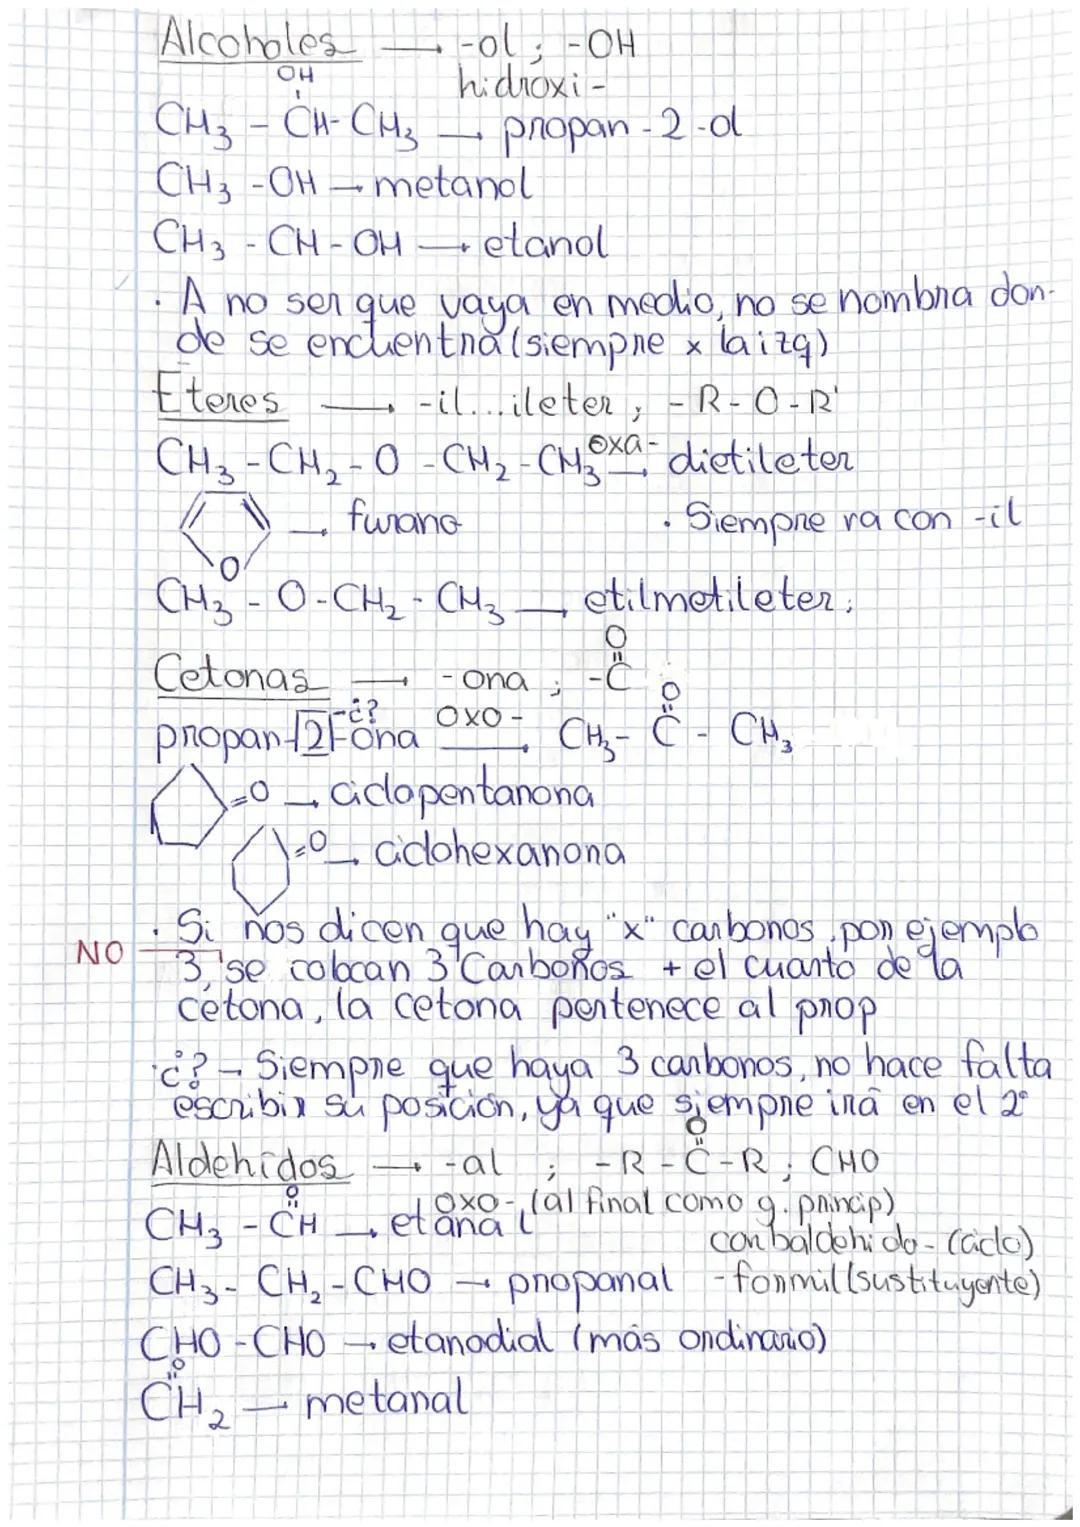 Alcoholes → -ol ; -OH
hidroxi-
OH
CH₃ - CH - CH₃ → propan-2-ol
CH₃ -OH → metanol
CH₃ - CH - OH → etanol
· A no ser que vaya en medio, no se nombra don-
de se encuentra (siempre x la izq)
Eteres → -il...ileter ; - R - O - R'
oxa-
CH₃ - CH₂ - O - CH₂ - CH₃ → dietileter
O → furano · Siempre va con -il
CH₃ - O - CH₂ - CH₃ → etilmetileter
O
Cetonas → -ona ; -C
oxo-
-¿? O
propan-2-ona → CH₃ - C - CH₃
=O → ciclopentanona
=O → ciclohexanona
· Si nos dicen que hay "x" carbonos, por ejemplo
NO 3, se colocan 3 Carbonos + el cuarto de la
cetona, la cetona pertenece al prop
·¿? → Siempre que haya 3 carbonos, no hace falta
escribir su posición, ya que siempre irá en el 2º
O
Aldehídos → -al ; - R - C - R ; CHO
oxo- (al final como g. princip)
O
CH₃ - CH → etanal carbaldehido- (ciclo)
CH₃ - CH₂ - CHO → propanal -formil (sustituyente)
CHO - CHO → etanodial (más ordinario)
O
CH₂ → metanal